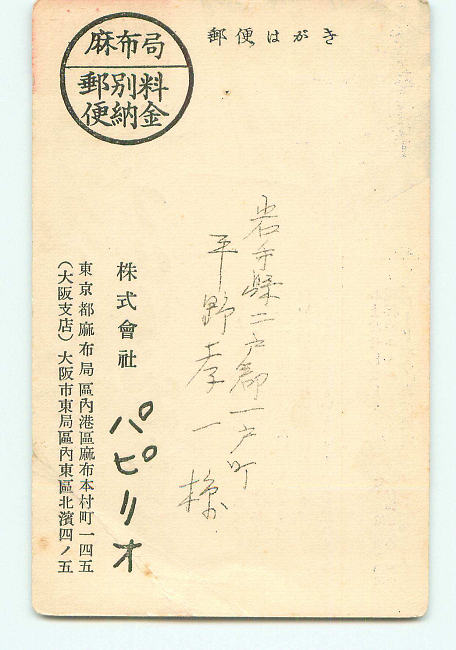 郵便はがき
麻布局
料金
別納
郵便
岩手縣二戸郡一戸町
平野孝一様
株式會社
パピリオ
東京都麻布局區內港區麻布本村町一四五
(大阪支店)大阪市東局區內東區北濱四ノ五